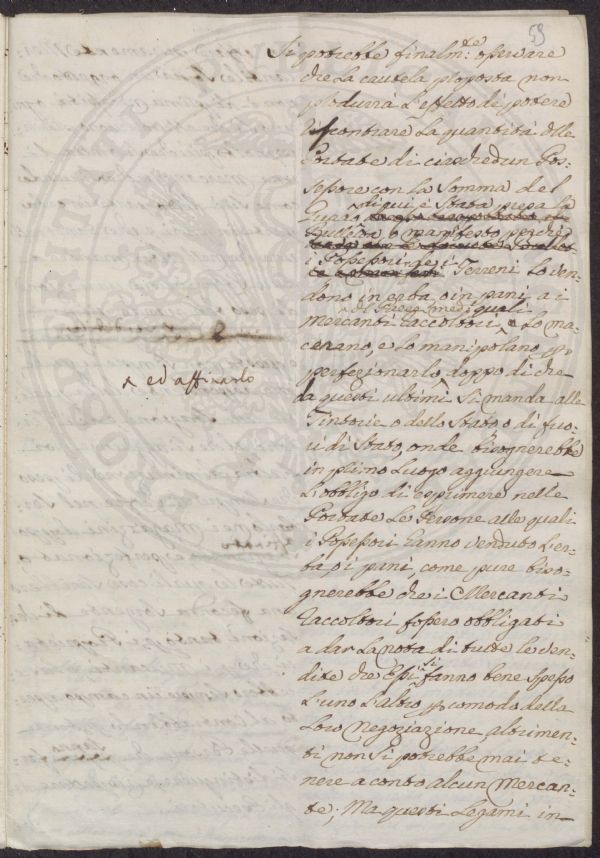 59
Si potrebbe finalm:te osservare
che la cautela proposta non
produrrà l'effetto di potere
riscontrare la quantità delle
Portate di ciaschedun Pos-
sessore con la Somma del
Guado
di qui è stata presa la
bulletta, o manifesto, perché
i Possessori de i Terreni lo ven-
dono in erba, o in pani a i
mercanti raccoltori, quali lo ma-
cerano, e lo manipolano p
perfezionarlo, doppo di che
^ ed affinarlo
da questi ultimi ^ si manda alle
Tintorie o dello Stato o di fuo-
ri di Stato, onde bisognerebbe
in primo luogo aggiungere
l'obbligo di esprimere nelle
Portate le Persone alle quali
i Possessori hanno venduto l'er-
ba, o i pani, come pure biso-
gnerebbe che i Mercanti
raccoltori fossero obbligati
a dar la nota di tutte le ven-
dite che Essi si fanno bene spesso
l'uno l'altro p comodo della
loro negoziazione altrimen-
ti non si potrebbe mai te-
nere a conto alcun Mercan-
te, Ma questi legami in-